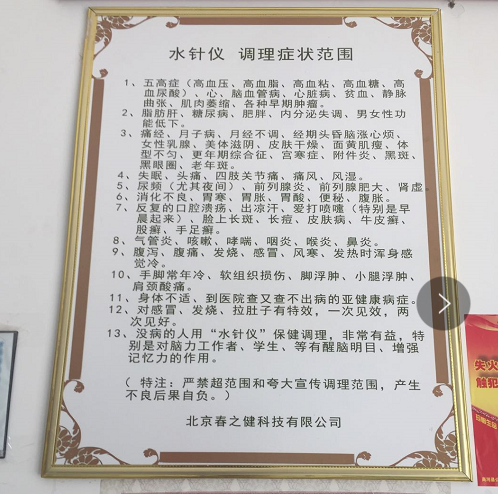 水针仪 调理症状范围
1、五高症（高血压、高血脂、高血粘、高血糖、高
血尿酸）、心、脑血管病、心脏病、贫血、静脉
曲张、肌肉萎缩、各种早期肿瘤。
2、脂肪肝、糖尿病、肥胖、内分泌失调、男女性功
能低下。
3、痛经、月子病、月经不调、经期头昏脑涨心烦、
女性乳腺、美体滋阴、皮肤干燥、面黄肌瘦、体
型不匀、更年期综合征、宫寒症、附件炎、黑斑、
黑眼圈、老年斑。
4、失眠、头痛、四肢关节痛、痛风、风湿。
5、尿频（尤其夜间）、前列腺炎、前列腺肥大、肾虚。
6、消化不良、胃寒、胃胀、胃酸、便秘、腹胀。
7、反复的口腔溃疡、出凉汗、爱打喷嚏（特别是早
晨起来）、脸上长斑、长痘、皮肤病、牛皮癣、
股癣、手足癣。
8、气管炎、咳嗽、哮喘、咽炎、喉炎、鼻炎。
9、腹泻、腹痛、发烧、感冒、风寒、发热时浑身感
觉冷。
10、手脚常年冷、软组织损伤、脚浮肿、小腿浮肿、
肩颈酸痛。
11、身体不适、到医院查又查不出病的亚健康病症。
12、对感冒、发烧、拉肚子有特效，一次见效，两
次见好。
13、没病的人用“水针仪”保健调理，非常有益，特
别是对脑力工作者、学生、等有醒脑明目、增强
记忆力的作用。
（ 特注：严禁超范围和夸大宣传调理范围，产生
不良后果自负。）
北京春之健科技有限公司
失火
触犯